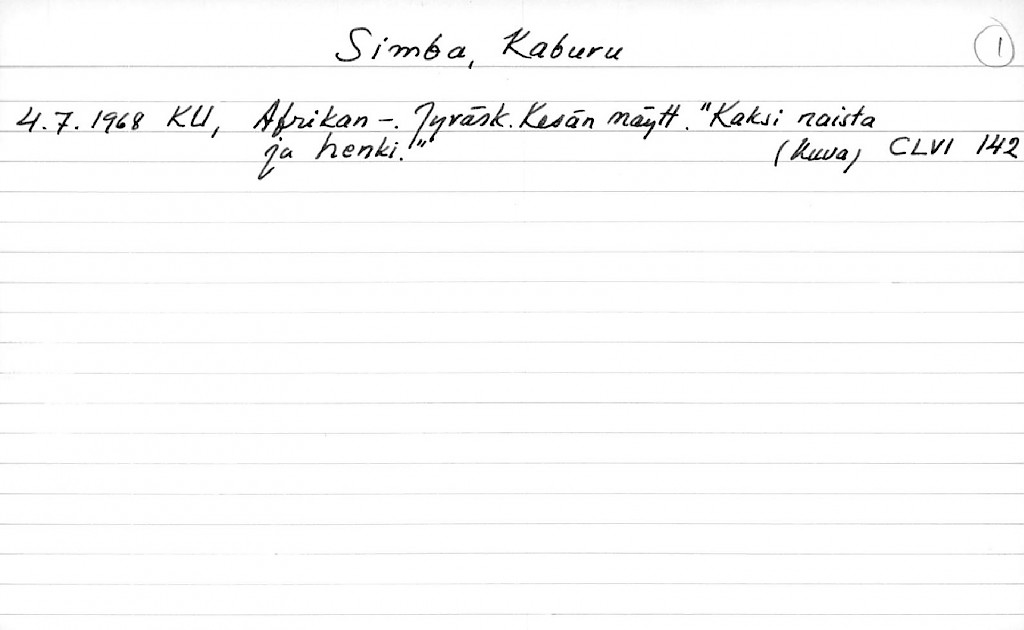 Simba, Kaburu
1
4.7.1968 KU, Afrikan -. Jyväsk. Kesän näytt. "Kaksi naista
ja henki." (Kuva) CLVI 142